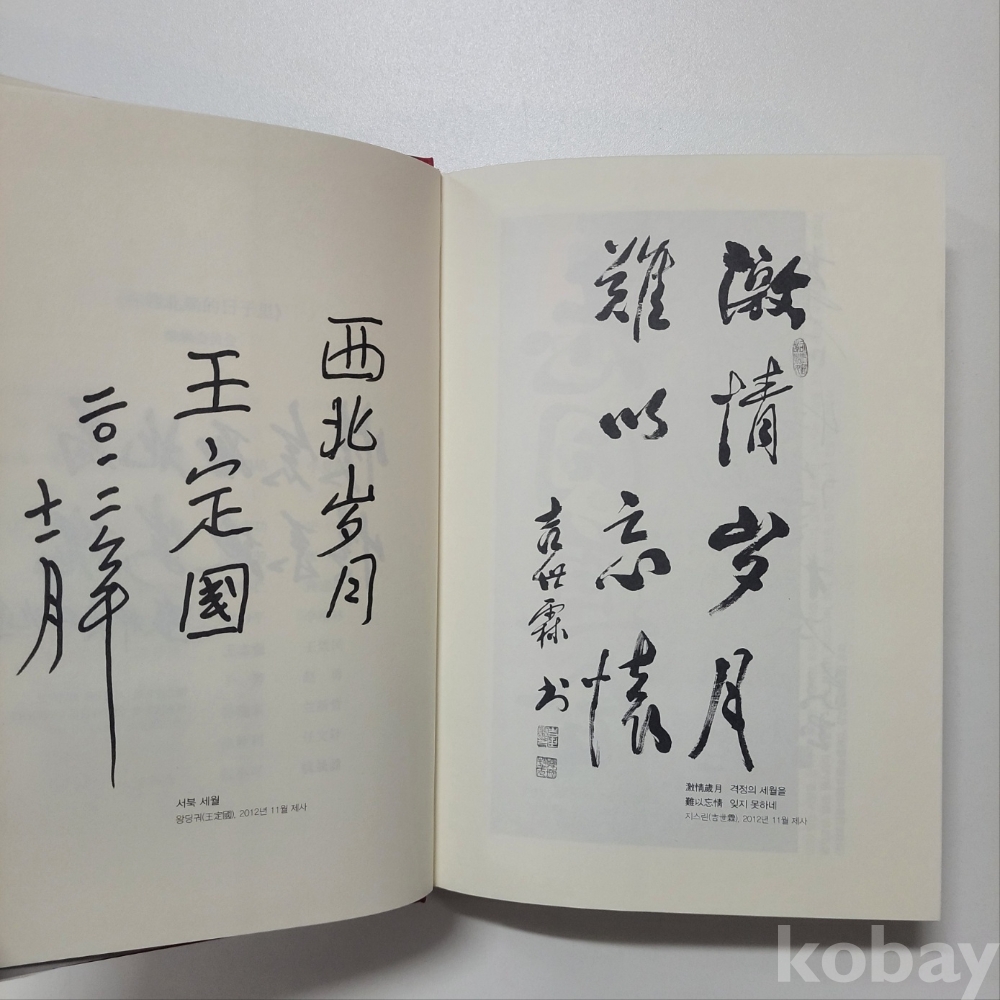 西北岁月
王定國
二〇一二年
十一月
서북 세월
왕딩궈(王定國), 2012년 11월 제사
激情岁月
難以忘懷
吉世霖书
激情歲月 격정의 세월을
難以忘情 잊지 못하네
지스린(吉世霖), 2012년 11월 제사
kobay